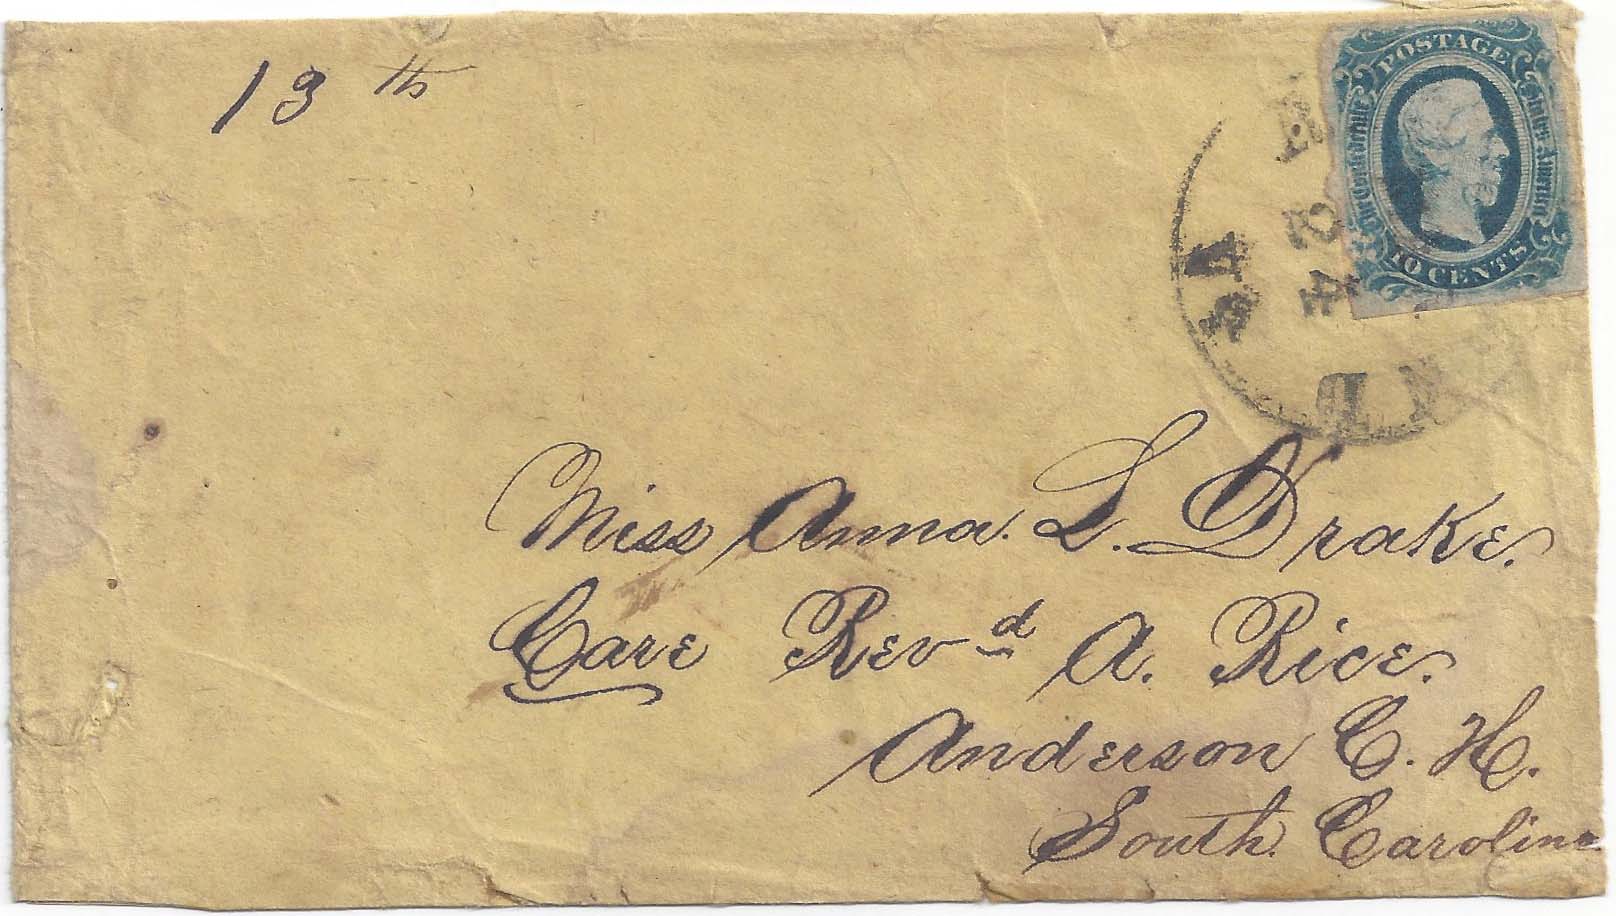 13th
POSTAGE
The Confederate States America
10 CENTS
24
VA
Miss Anna. L. Drake.
Care Revd A. Rice.
Anderson C. H.
South. Carolina